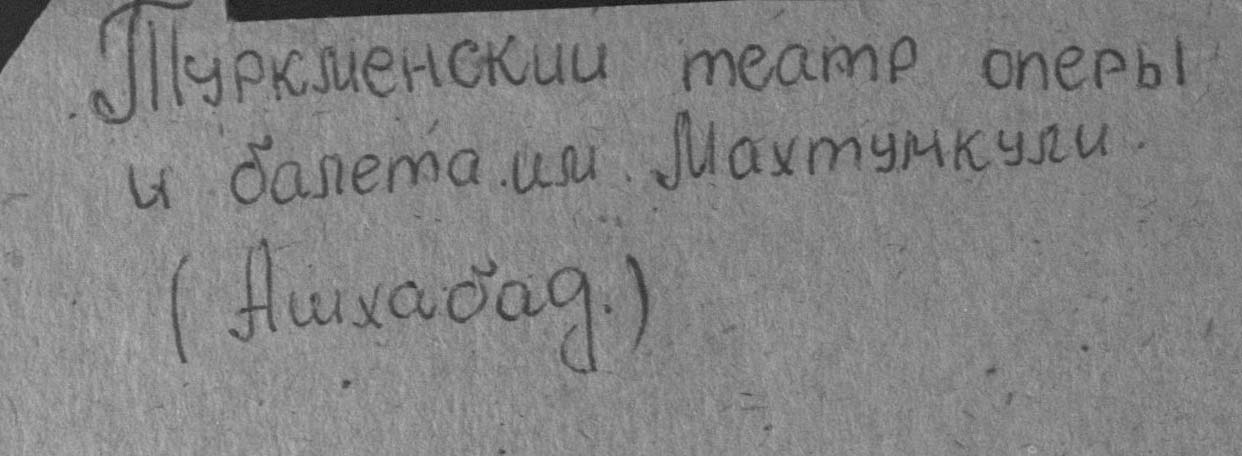 Туркменский театр оперы
и балета.им. Махтумкули.
(Ашхабад.)